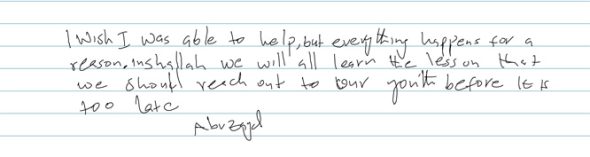 I wish I was able to help, but everything happens for a
reason. inshallah we will all learn the lesson that
we should reach out to our youth before it is
too late
Abuzayd